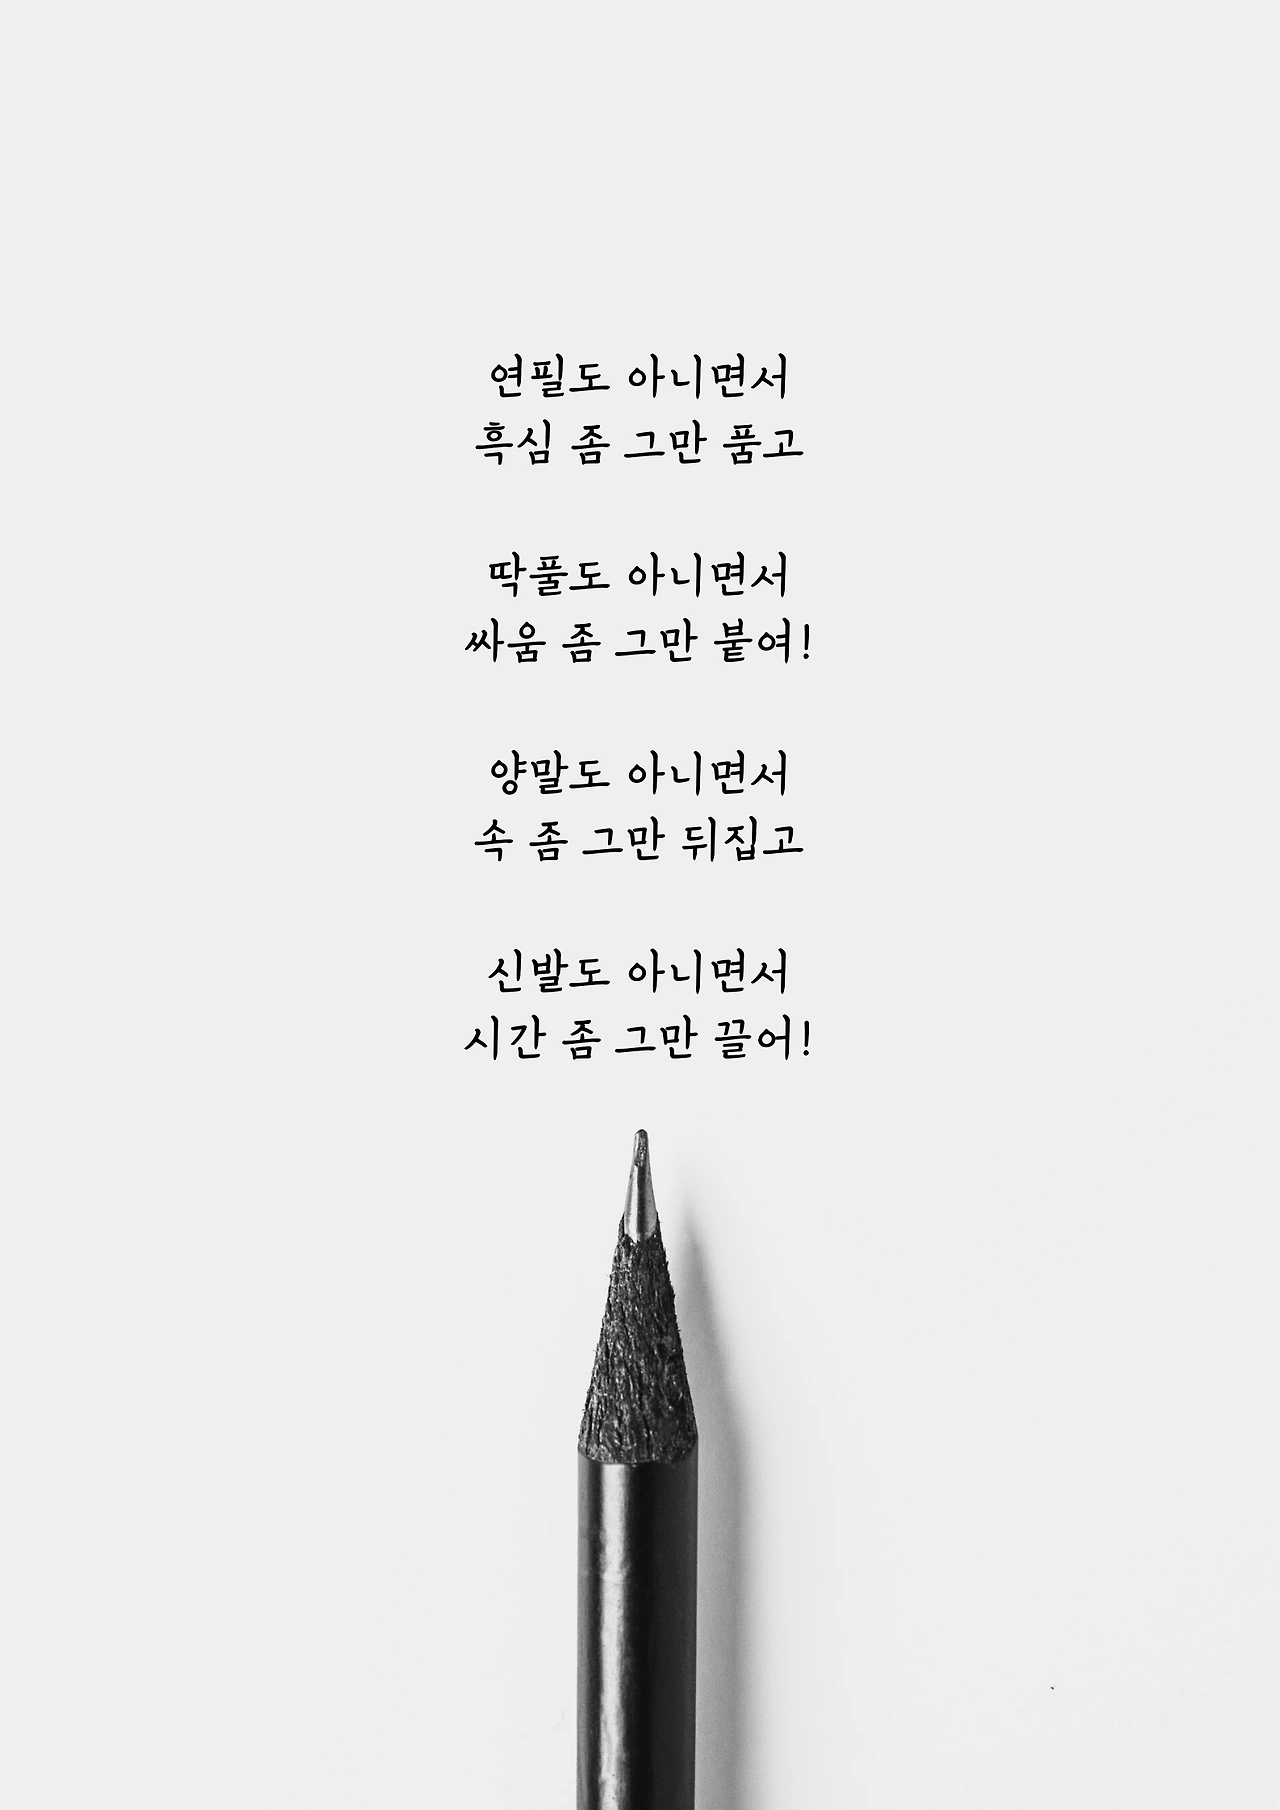 연필도 아니면서
흑심 좀 그만 품고
딱풀도 아니면서
싸움 좀 그만 붙여!
양말도 아니면서
속 좀 그만 뒤집고
신발도 아니면서
시간 좀 그만 끌어!